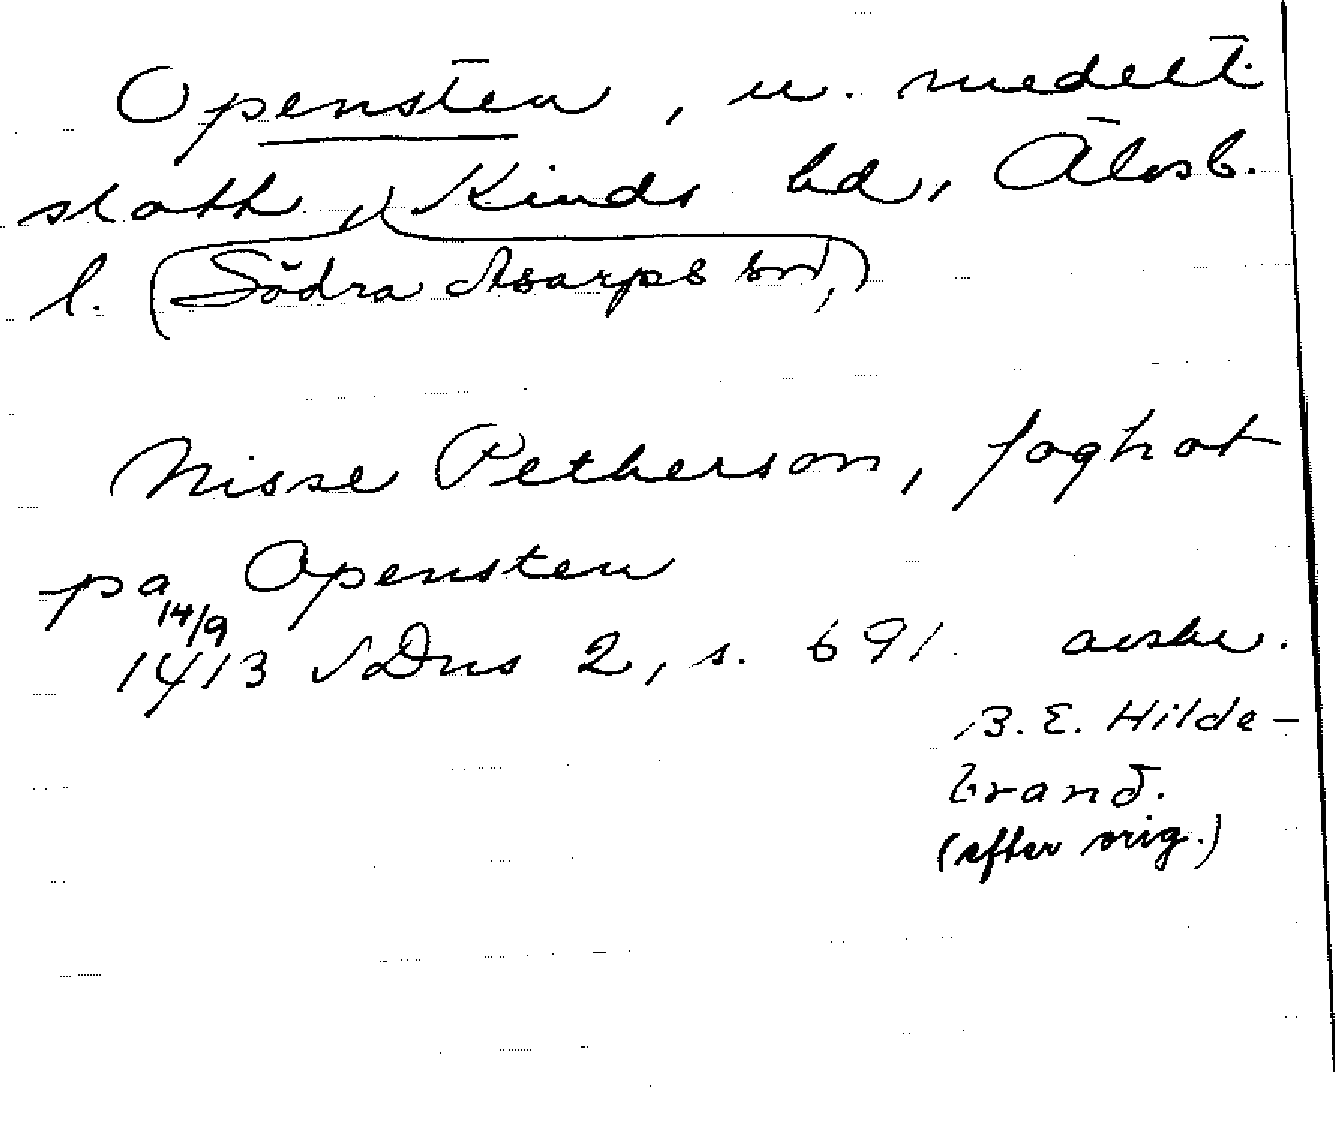 Opensten, n. medelt.
slott, Kinds hd, Älvsb.
l. (Södra Åsarps sn,)
Nisse Petherson, foghot
pa Opensten
14/9
1413 SDns 2, s. 691. avskr.
B. E. Hilde-
brand.
(efter orig.)